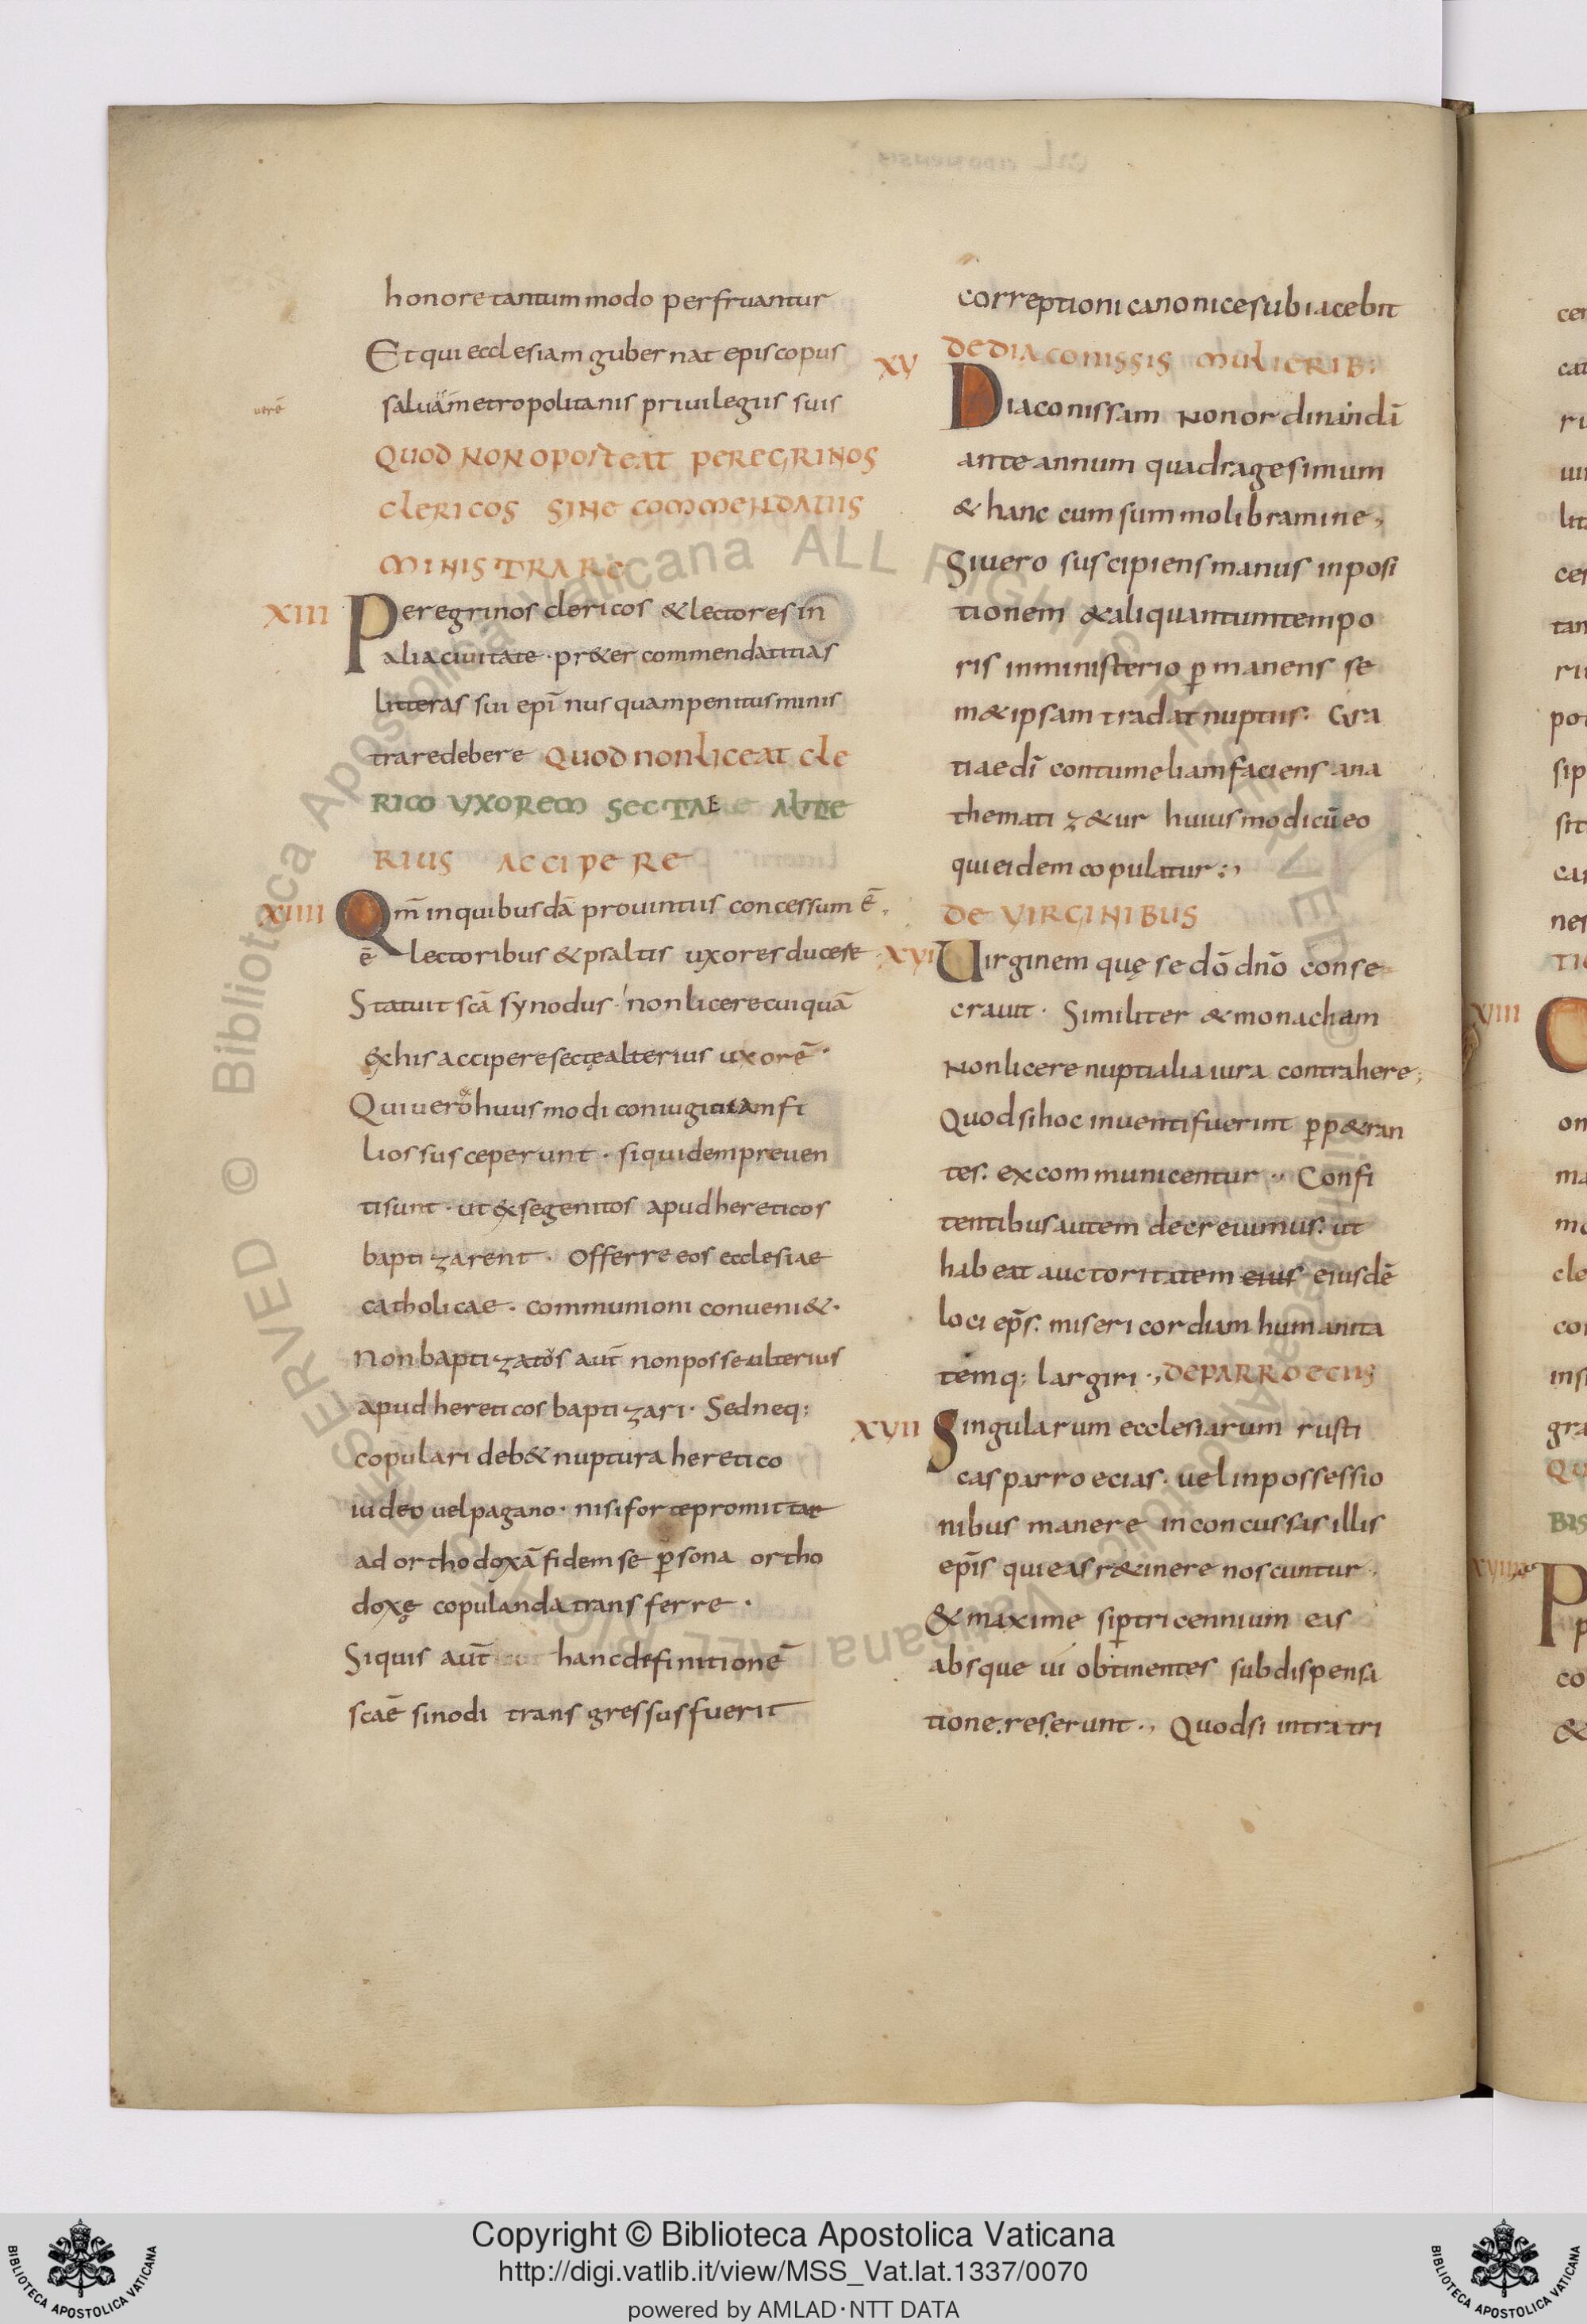 honore tantummodo perfruantur
Et qui ecclesiam gubernat episcopus
salua metropolitanis priuilegiis suis
QUOD NON OPORTEAT PEREGRINOS
CLERICOS SINE COMMENDATIIS
MINISTRARE
XIII Peregrinos clericos & lectores in
alia ciuitate · pr&er commendatitias
litteras sui epī nusquam penitus minis
trare debere QUOD NON LICEAT CLE
RICO UXOREM SECTAE ALTE
RIUS ACCIPERE
XIIII Qm̄ in quibusdā prouintiis concessum ē
ē lectoribus & psaltis uxores ducere
Statuit scā synodus · non licere cuiquā
ex his accipere sectę alterius uxorē ·
Qui uero & huius modi coniugio iam fi
lios susceperunt · siquidem preuen
ti sunt · ut ex se genitos apud hereticos
baptizarent · Offerre eos ecclesiae
catholicae · communioni conueni& ·
Non baptizatos aut̄ non posse ulterius
apud hereticos baptizari · Sed neq;
copulari deb& nuptura heretico
iudeo uel pagano · nisi forte promittat
ad orthodoxā fidem se ꝑsona ortho
doxę copulanda transferre ·
Siquis aut̄ hanc definitionē
scāe sinodi transgressus fuerit
uerē
correptioni canonice subiacebit
XV DE DIACONISSIS MULIERIB:
Diaconissam non ordinandā
ante annum quadragesimum
& hanc cum summo libramine ;
Si uero suscipiens manus inposi
tionem & aliquantum tempo
ris in ministerio ꝑmanens se
m&ipsam tradat nuptiis · Gra
tiae dī contumeliam faciens ana
themati z&ur huiusmodi cū eo
qui eidem copulatur :,
DE VIRGINIBUS
XVI Uirginem quę se dō dn̄o conse
crauit · Similiter & monacham
Non licere nuptialia iura contrahere ;
Quod si hoc inuenti fuerint ꝑp&ran
tes · excommunicentur ·, Confi
tentibus autem decreuimus · ut
habeat auctoritatem eius eiusdē
loci ep̄s · misericordiam humanita
temq; largiri ·, DE PARROECIIS
XVII Singularum ecclesiarum rusti
cas parroecias · uel in possessio
nibus manere inconcussas illis
epīs qui eas r&inere noscuntur ·
& maxime si ꝑ tricennium eas
absque ui obtinentes sub dispensa
tione reserunt ·, Quod si intra tri
Copyright © Biblioteca Apostolica Vaticana
http://digi.vatlib.it/view/MSS_Vat.lat.1337/0070
powered by AMLAD·NTT DATA
BIBLIOTECA APOSTOLICA VATICANA
BIBLIOTECA APOSTOLICA VATICANA